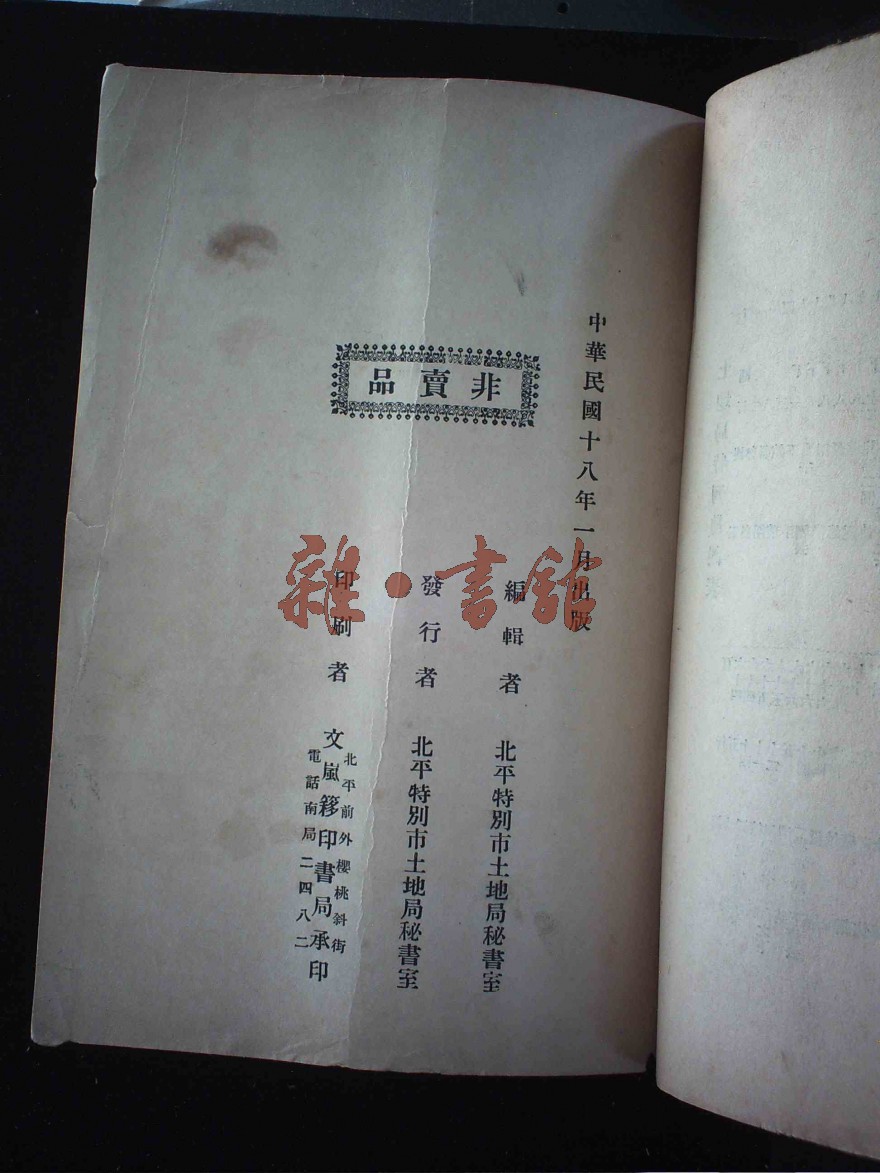 中華民國十八年一月出版
非賣品
編輯者 北平特別市土地局秘書室
發行者 北平特別市土地局秘書室
印刷者 文嵐簃印書局承印
北平前外櫻桃斜街
電話南局二四八二
雜·書館